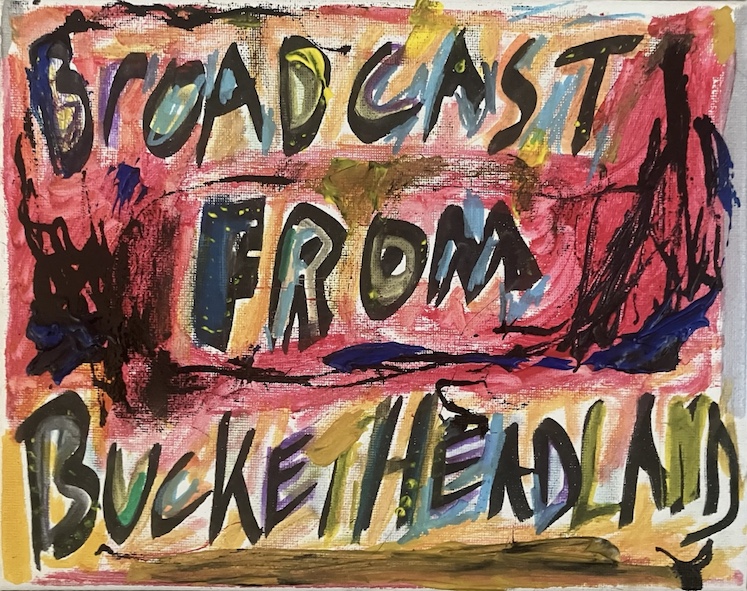 BrOADCAST
FROM
BUCKETHEADLAND